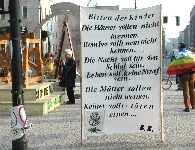 Bitten der Kinder
Die Häuser sollen nicht
brennen.
Bomber soll man nicht
kennen.
Die Nacht soll für den
Schlaf sein.
Leben soll keine Straf
sein.
Die Mütter sollen
nicht weinen.
Keiner sollt töten
einen...
B.B.